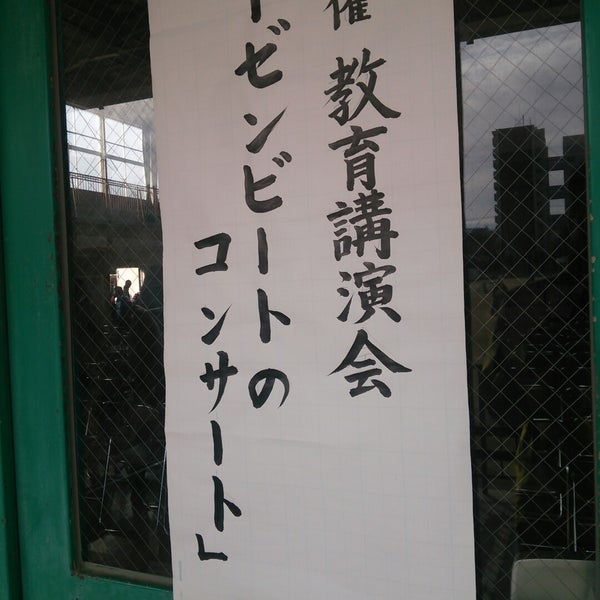 催 教育講演会
ーゼンビートの
コンサート」